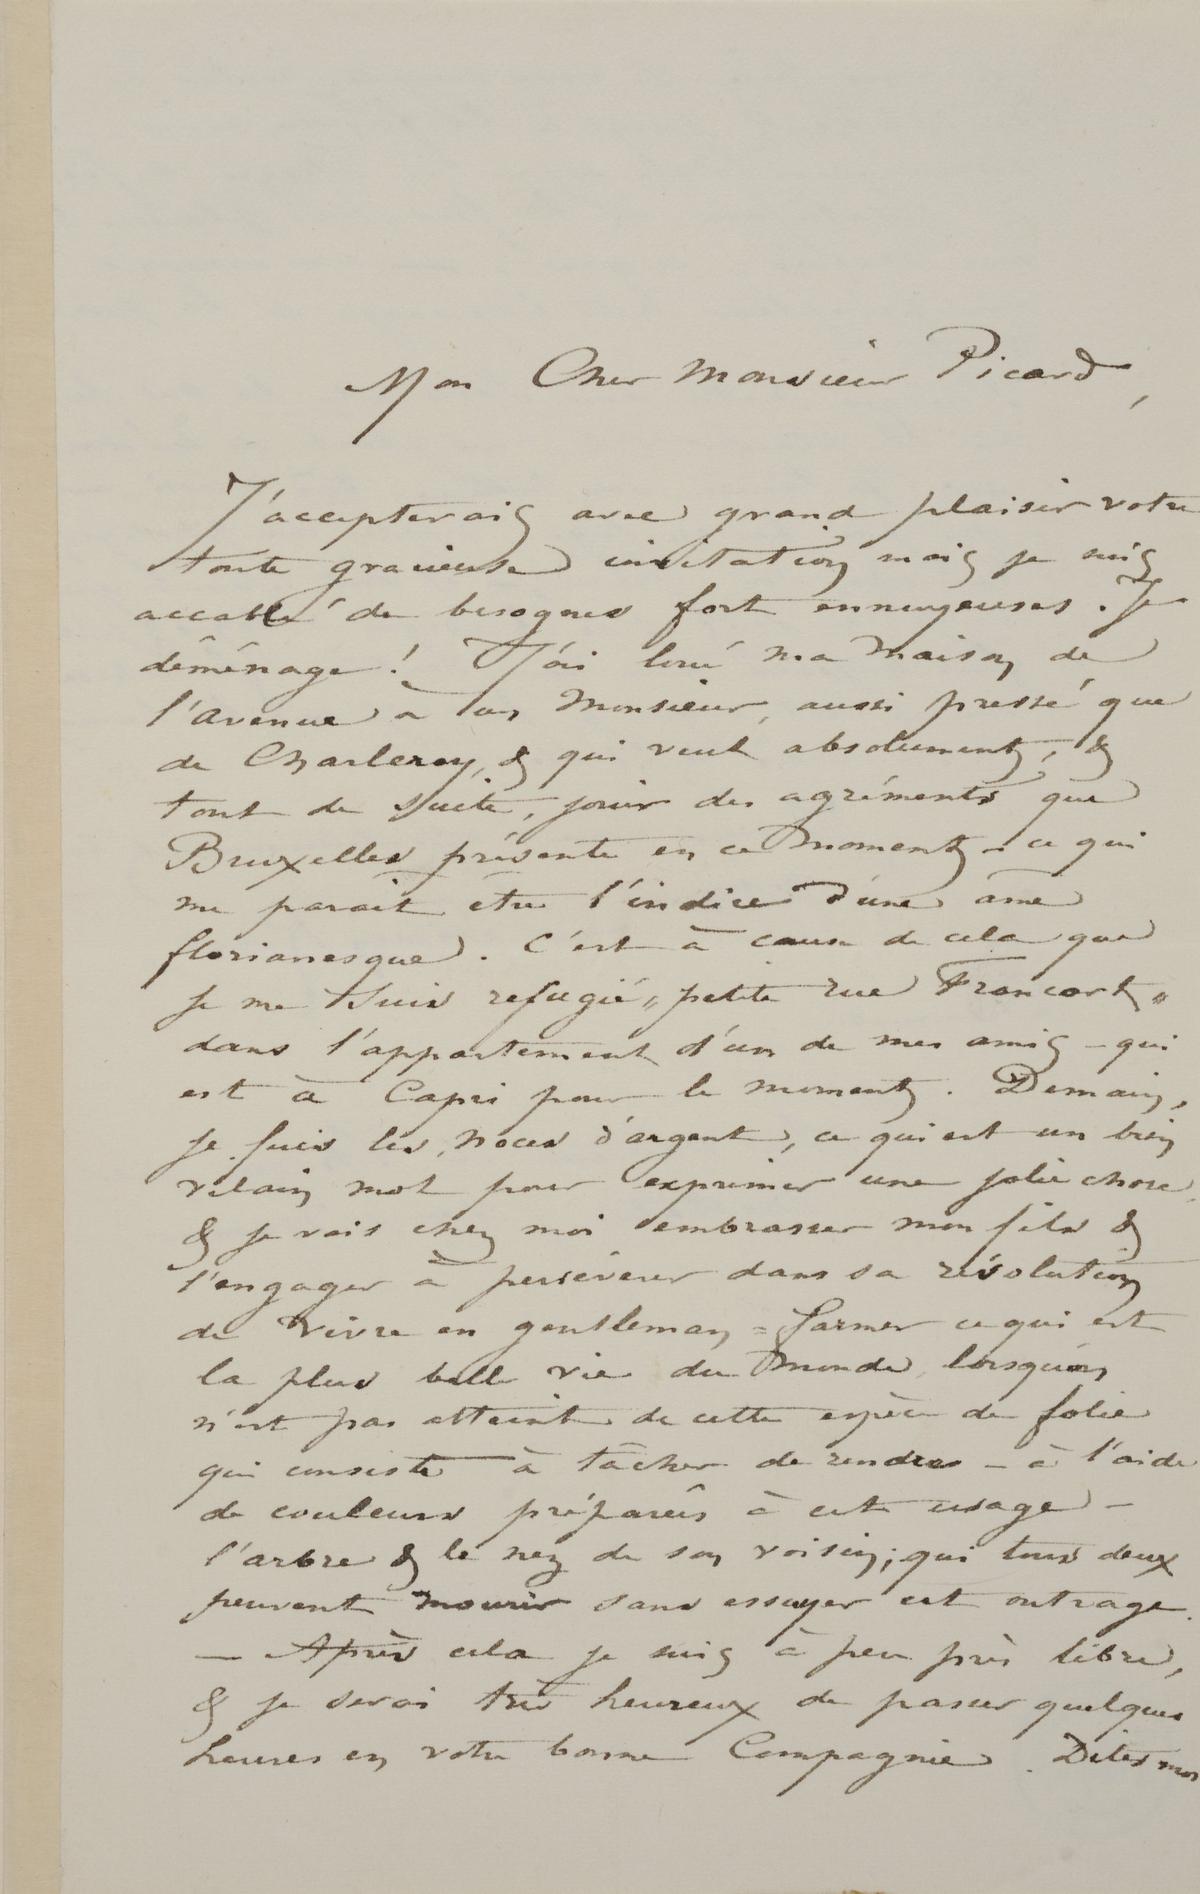 Mon Cher Monsieur Picard,
J'accepterais avec grand plaisir votre
toute gracieuse invitation mais je suis
accablé de besognes fort ennuyeuses. Je
déménage! J'ai loué ma maison de
l'avenue à un Monsieur, aussi pressé que
de Charleroy, & qui veut absolument, &
tout de suite, jouir des agréments que
Bruxelles présente en ce moment - ce qui
me parait être l'indice d'une âme
florianesque. C'est à cause de cela que
je me suis refugié „petite rue Francart"
dans l'appartement d'un de mes amis - qui
est à Capri pour le moment. Demain,
je fuis les noces d'argent, ce qui est un bien
vilain mot pour exprimer une jolie chose,
& je vais chez moi embrasser mon fils &
l'engager à persévérer dans sa résolution
de vivre en gentleman = farmer ce qui est
la plus belle vie du monde, lorsqu'on
n'est pas atteint de cette espèce de folie
qui consiste à tâcher de rendre - à l'aide
de couleurs préparées à cet usage -
l'arbre & le nez de son voisin; qui tous deux
peuvent mourir sans essuyer cet outrage.
— Après cela je suis à peu près libre,
& je serai très heureux de passer quelques
heures en votre bonne Compagnie. Dites moi